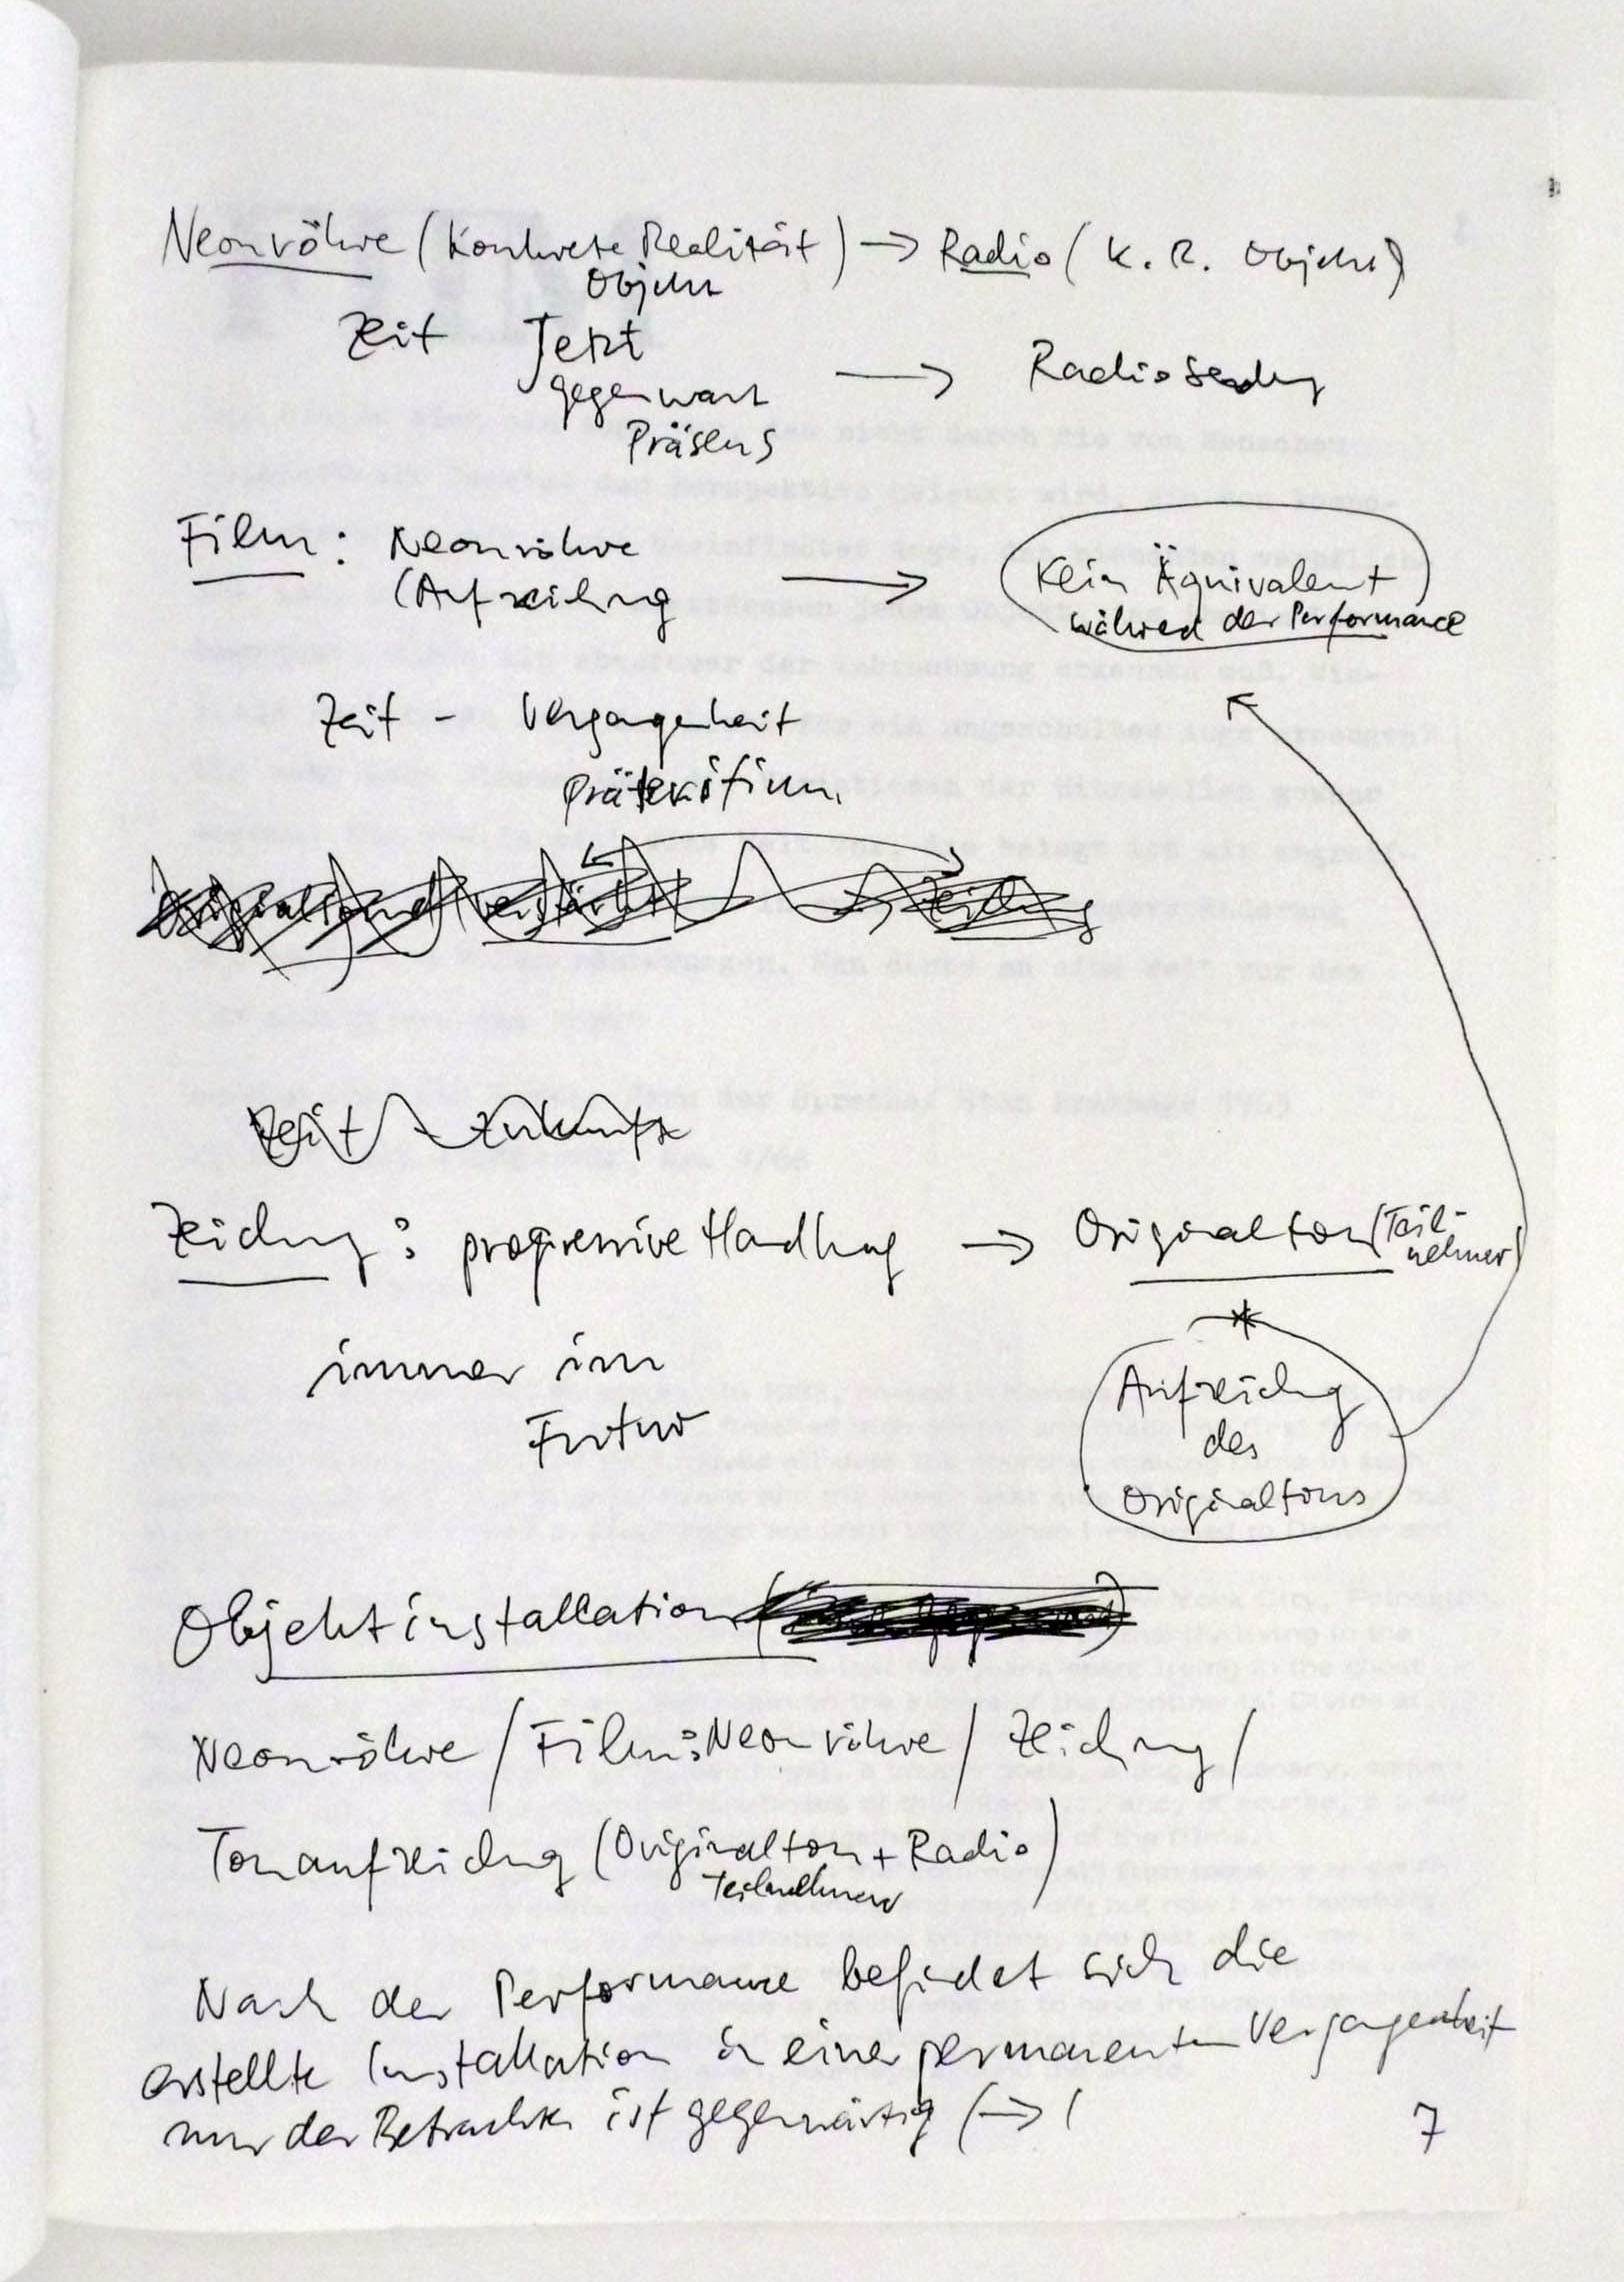 Neonröhre (Konkrete Realität) → Radio (K. R. Objekt)
Objekt
Zeit Jetzt
Gegenwart → Radiosendung
Präsens
Film: Neonröhre → Kein Äquivalent
(Aufzeichnung während der Performance
Zeit - Vergangenheit
Präteritum
Zeit - Zukunft
Zeichnung: progressive Handlung → Originalton (Teil-
nehmer)
*
immer im
Futur
Aufzeichnung
des
Originaltons
Objektinstallation
Neonröhre / Film: Neonröhre / Zeichnung /
Tonaufzeichnung (Originalton + Radio)
Teilnehmer
Nach der Performance befindet sich die
erstellte Installation in einer permanenten Vergangenheit
nur der Betrachter ist gegenwärtig (→ (
7